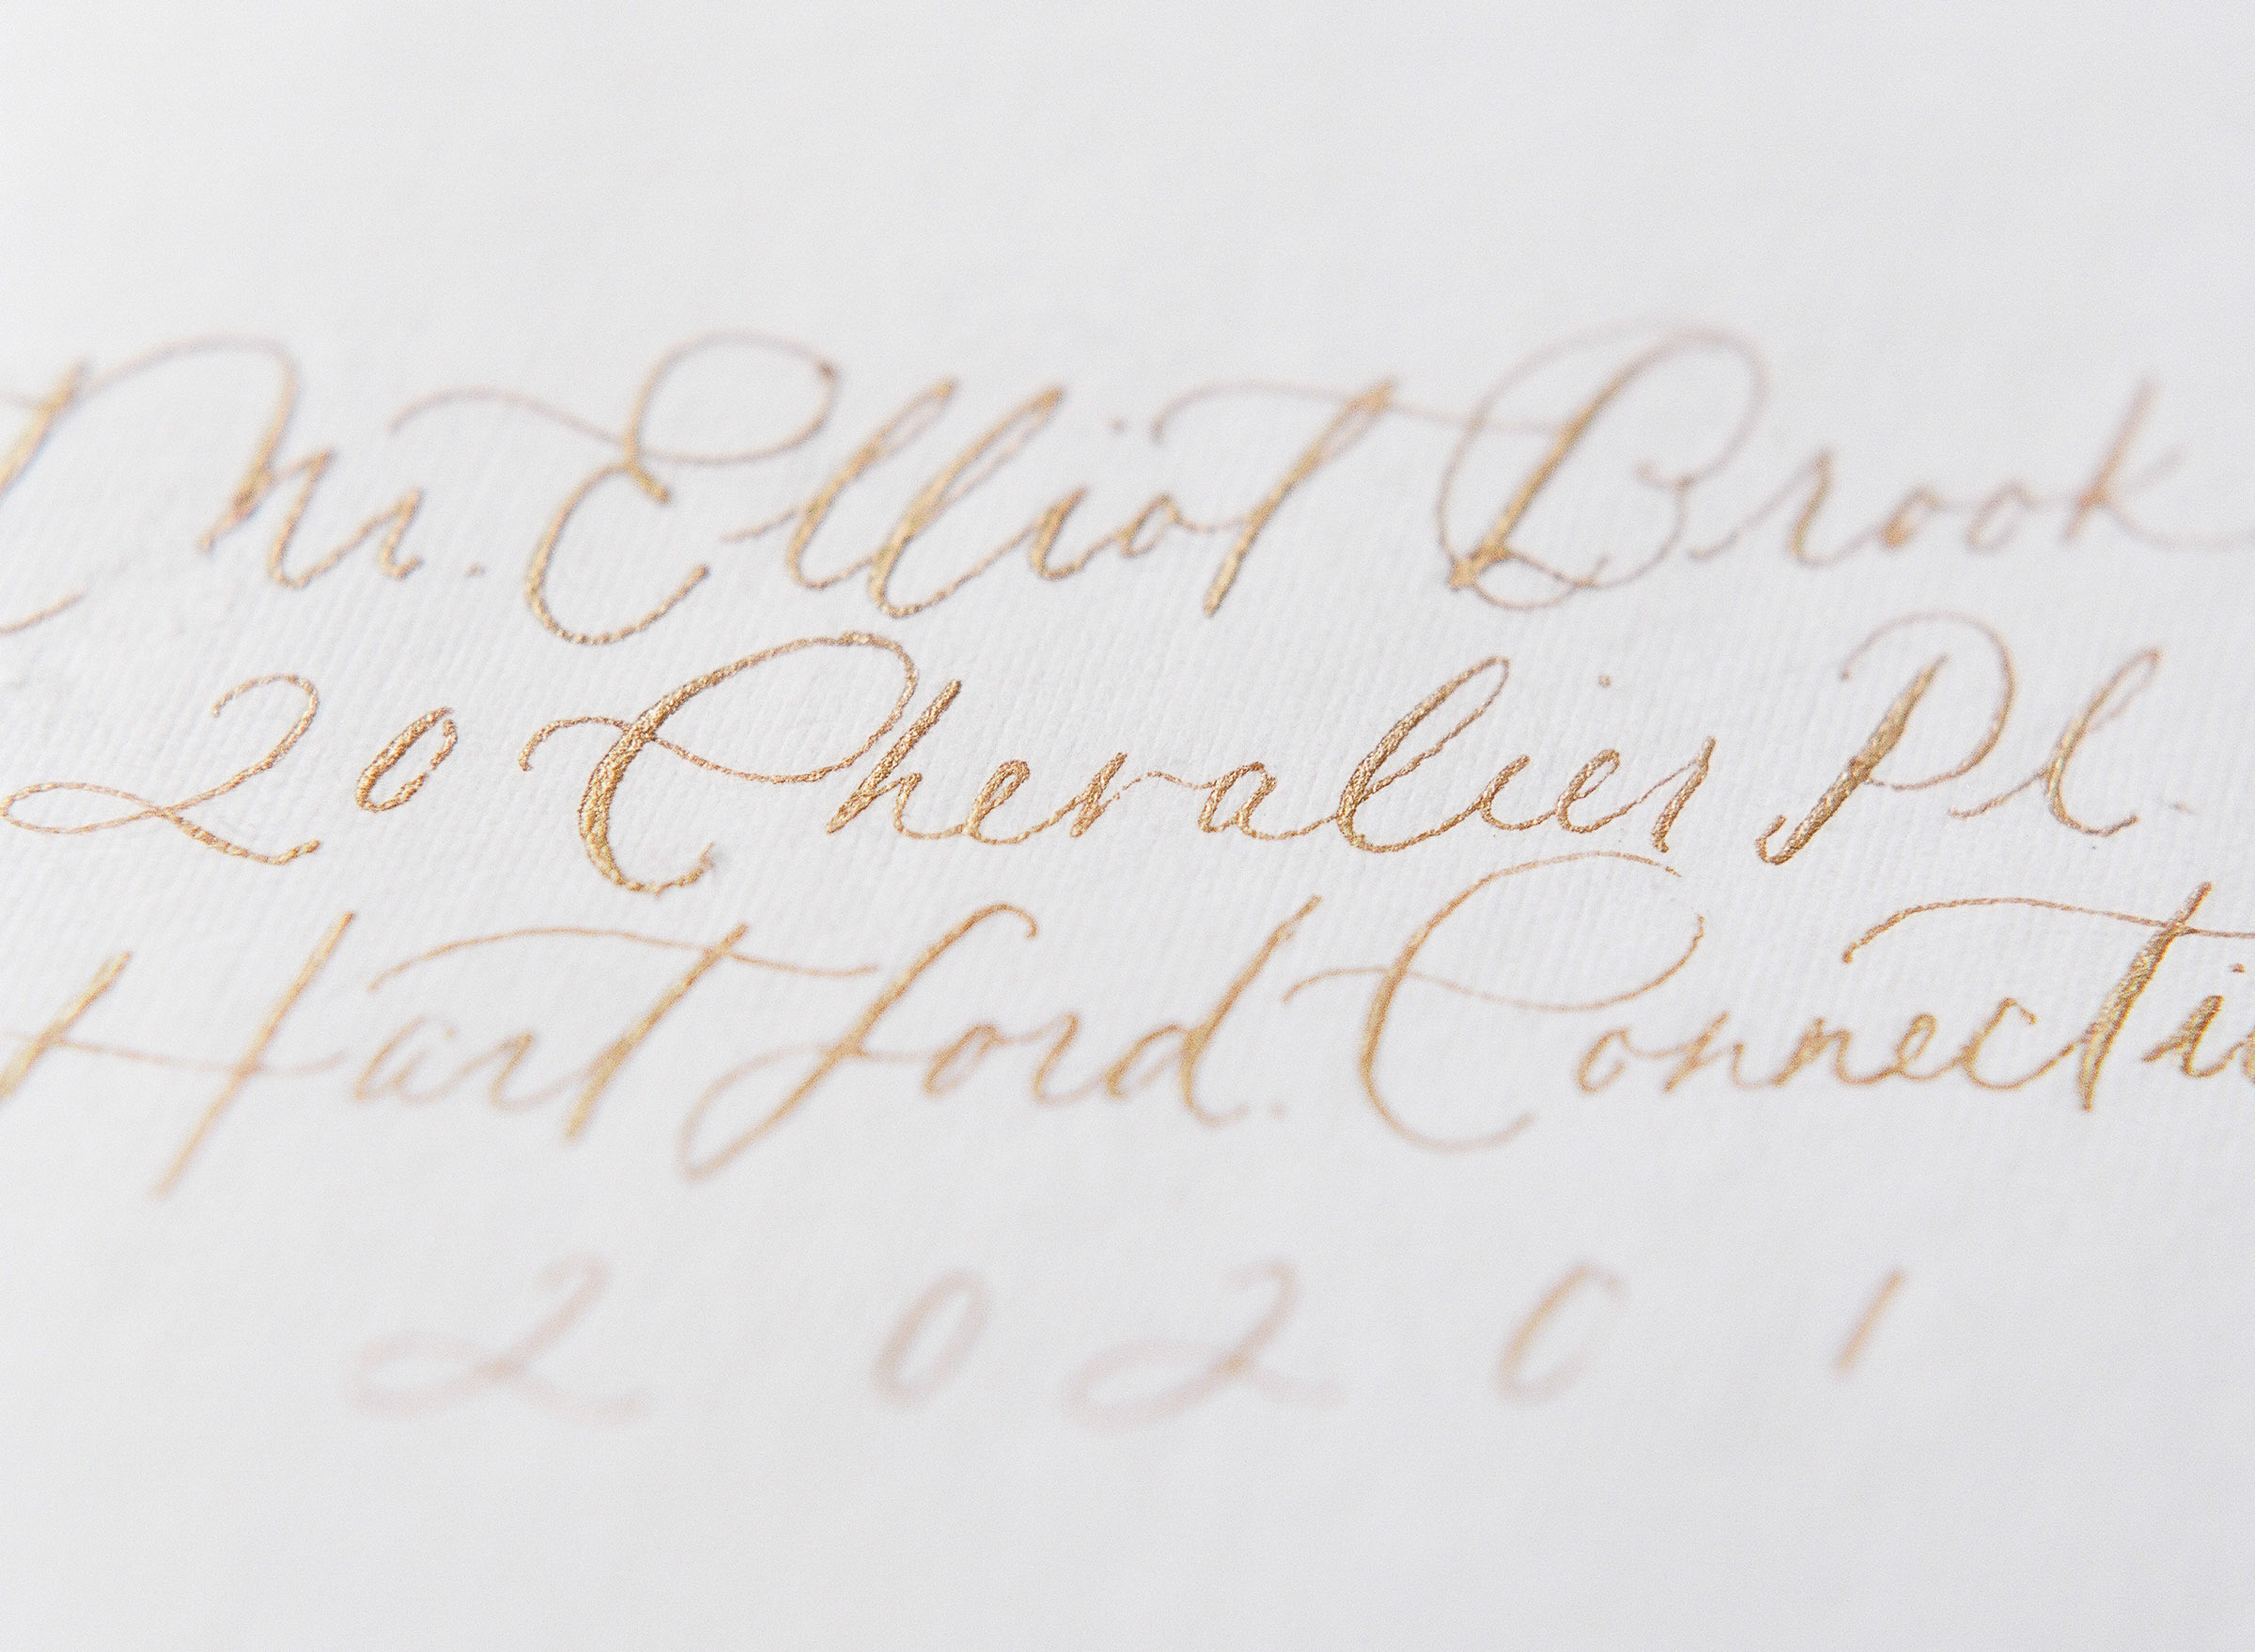 Mr. Elliot Brook
20 Chevalier Pl.
Hartford. Connecti
20201